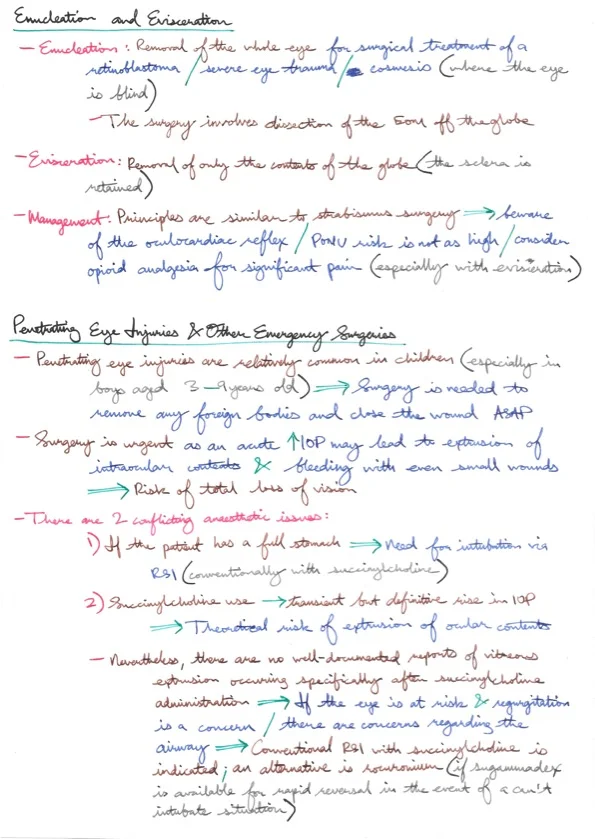 Enucleation and Evisceration
— Enucleation: Removal of the whole eye for surgical treatment of a
retinoblastoma / severe eye trauma / cosmesis (where the eye
is blind)
— The surgery involves dissection of the EOM off the globe
— Evisceration: Removal of only the contents of the globe (the sclera is
retained)
— Management: Principles are similar to strabismus surgery ⟹ beware
of the oculocardiac reflex / PONV risk is not as high / consider
opioid analgesia for significant pain (especially with evisceration)
Penetrating Eye Injuries & Other Emergency Surgeries
— Penetrating eye injuries are relatively common in children (especially in
boys aged 3–9 years old) ⟹ Surgery is needed to
remove any foreign bodies and close the wound ASAP
— Surgery is urgent as an acute ↑IOP may lead to extrusion of
intraocular contents & bleeding with even small wounds
⟹ Risk of total loss of vision
— There are 2 conflicting anaesthetic issues:
1) If the patient has a full stomach ⟹ Need for intubation via
RSI (conventionally with succinylcholine)
2) Succinylcholine use → transient but definitive rise in IOP
⟹ Theoretical risk of extrusion of ocular contents
— Nevertheless, there are no well-documented reports of vitreous
extrusion occuring specifically after succinylcholine
administration ⟹ If the eye is at risk & regurgitation
is a concern / there are concerns regarding the
airway ⟹ Conventional RSI with succinylcholine is
indicated; an alternative is rocuronium (if sugammadex
is available for rapid reversal in the event of a can't
intubate situation)